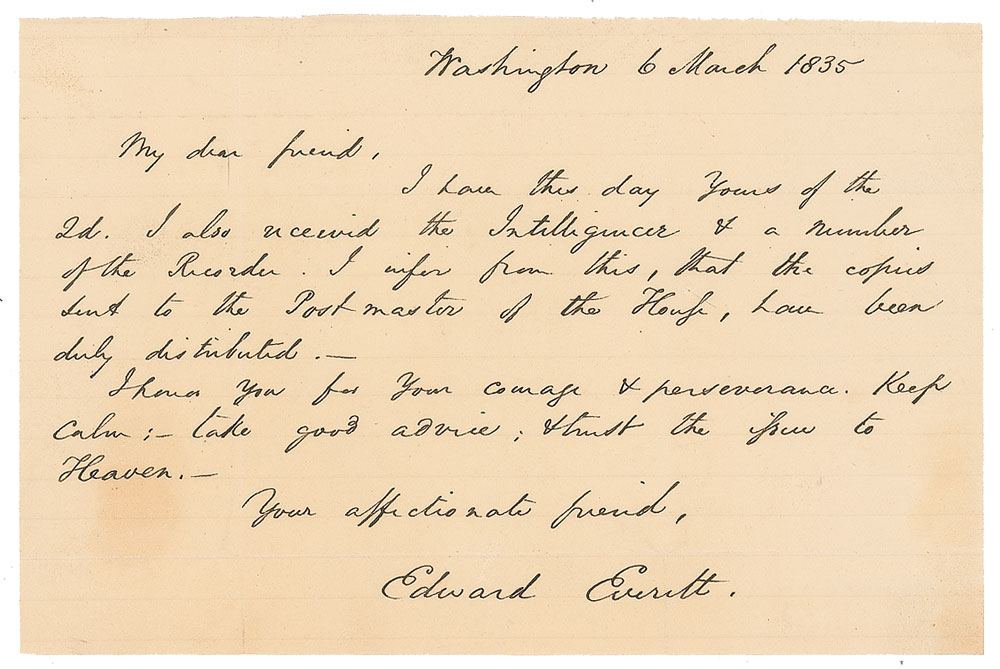 Washington 6 March 1835
My dear friend,
I have this day Yours of the
2d. I also received the Intelligencer & a number
of the Recorder. I infer from this, that the copies
sent to the Postmaster of the House, have been
duly distributed. —
I honor You for Your courage & perseverance. Keep
calm; – take good advice; & trust the issue to
Heaven. —
Your affectionate friend,
Edward Everett.